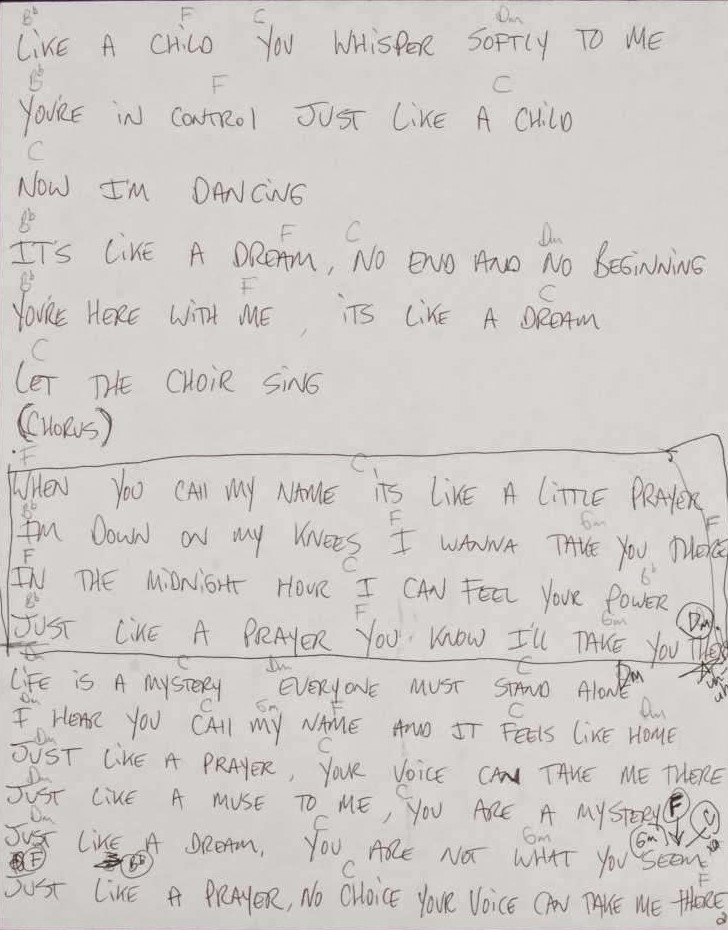 Bb F C Dm
LIKE A CHILD YOU WHISPER SOFTLY TO ME
Bb F C
YOU'RE IN CONTROL JUST LIKE A CHILD
C
NOW I'M DANCING
Bb F C Dm
IT'S LIKE A DREAM, NO END AND NO BEGINNING
Bb F C
YOU'RE HERE WITH ME, ITS LIKE A DREAM
C
LET THE CHOIR SING
(CHORUS)
F C
WHEN YOU CALL MY NAME ITS LIKE A LITTLE PRAYER
Bb F Gm F
I'M DOWN ON MY KNEES I WANNA TAKE YOU THERE
F C Bb
IN THE MIDNIGHT HOUR I CAN FEEL YOUR POWER
Bb F Gm Dm
JUST LIKE A PRAYER YOU KNOW I'LL TAKE YOU THERE
C Dm C Dm
LIFE IS A MYSTERY EVERYONE MUST STAND ALONE
Dm C Gm F C Dm
I HEAR YOU CALL MY NAME AND IT FEELS LIKE HOME
Dm C
JUST LIKE A PRAYER, YOUR VOICE CAN TAKE ME THERE
Dm C F C
JUST LIKE A MUSE TO ME, YOU ARE A MYSTERY
Dm C Gm Gm
JUST LIKE A DREAM, YOU ARE NOT WHAT YOU SEEM
F Bb C F
JUST LIKE A PRAYER, NO CHOICE YOUR VOICE CAN TAKE ME THERE